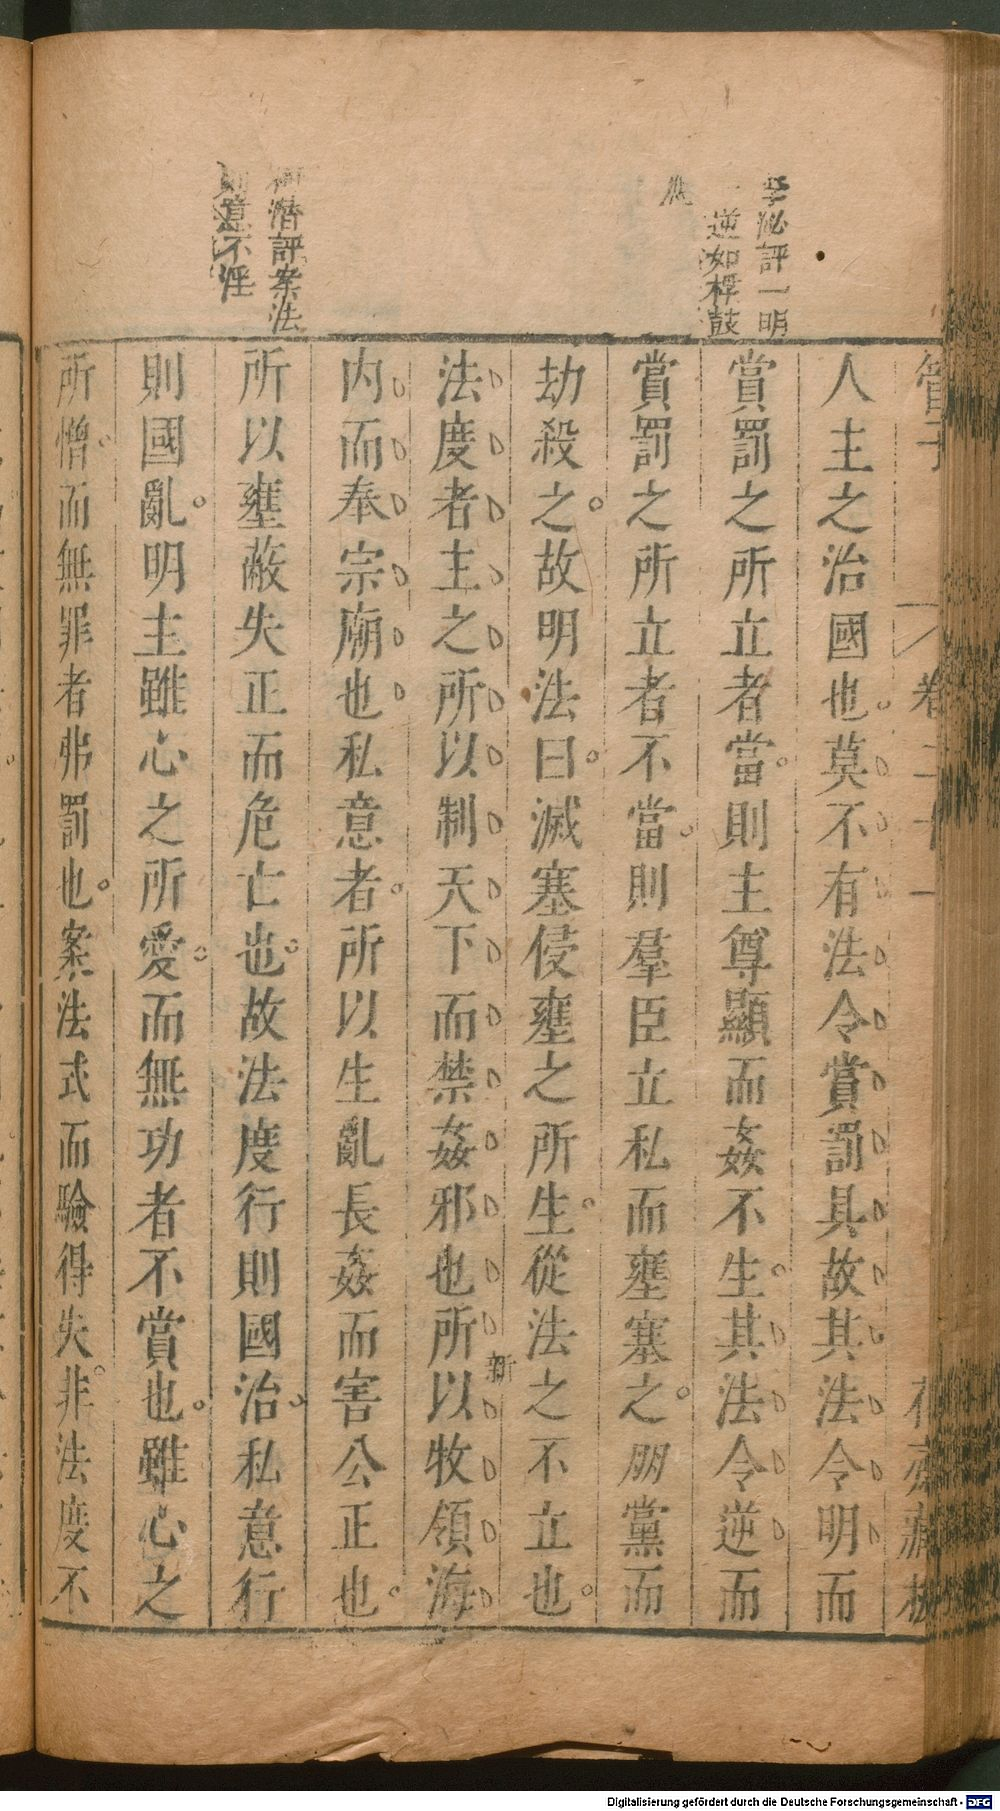 評一明
逆如桴鼓
潛評案法
則意不淫
管子
卷二十一
人主之治國也莫不有法令賞罰具故其法令明而
賞罰之所立者當則主尊顯而姦不生其法令逆而
賞罰之所立者不當則羣臣立私而壅塞之朋黨而
劫殺之故明法曰滅塞侵壅之所生從法之不立也
法度者主之所以制天下而禁姦邪也所以牧領海
新
内而奉宗廟也私意者所以生亂長姦而害公正也
所以壅蔽失正而危亡也故法度行則國治私意行
則國亂明主雖心之所愛而無功者不賞也雖心之
所憎而無罪者弗罰也案法式而驗得失非法度不
Digitalisierung gefördert durch die Deutsche Forschungsgemeinschaft - DFG